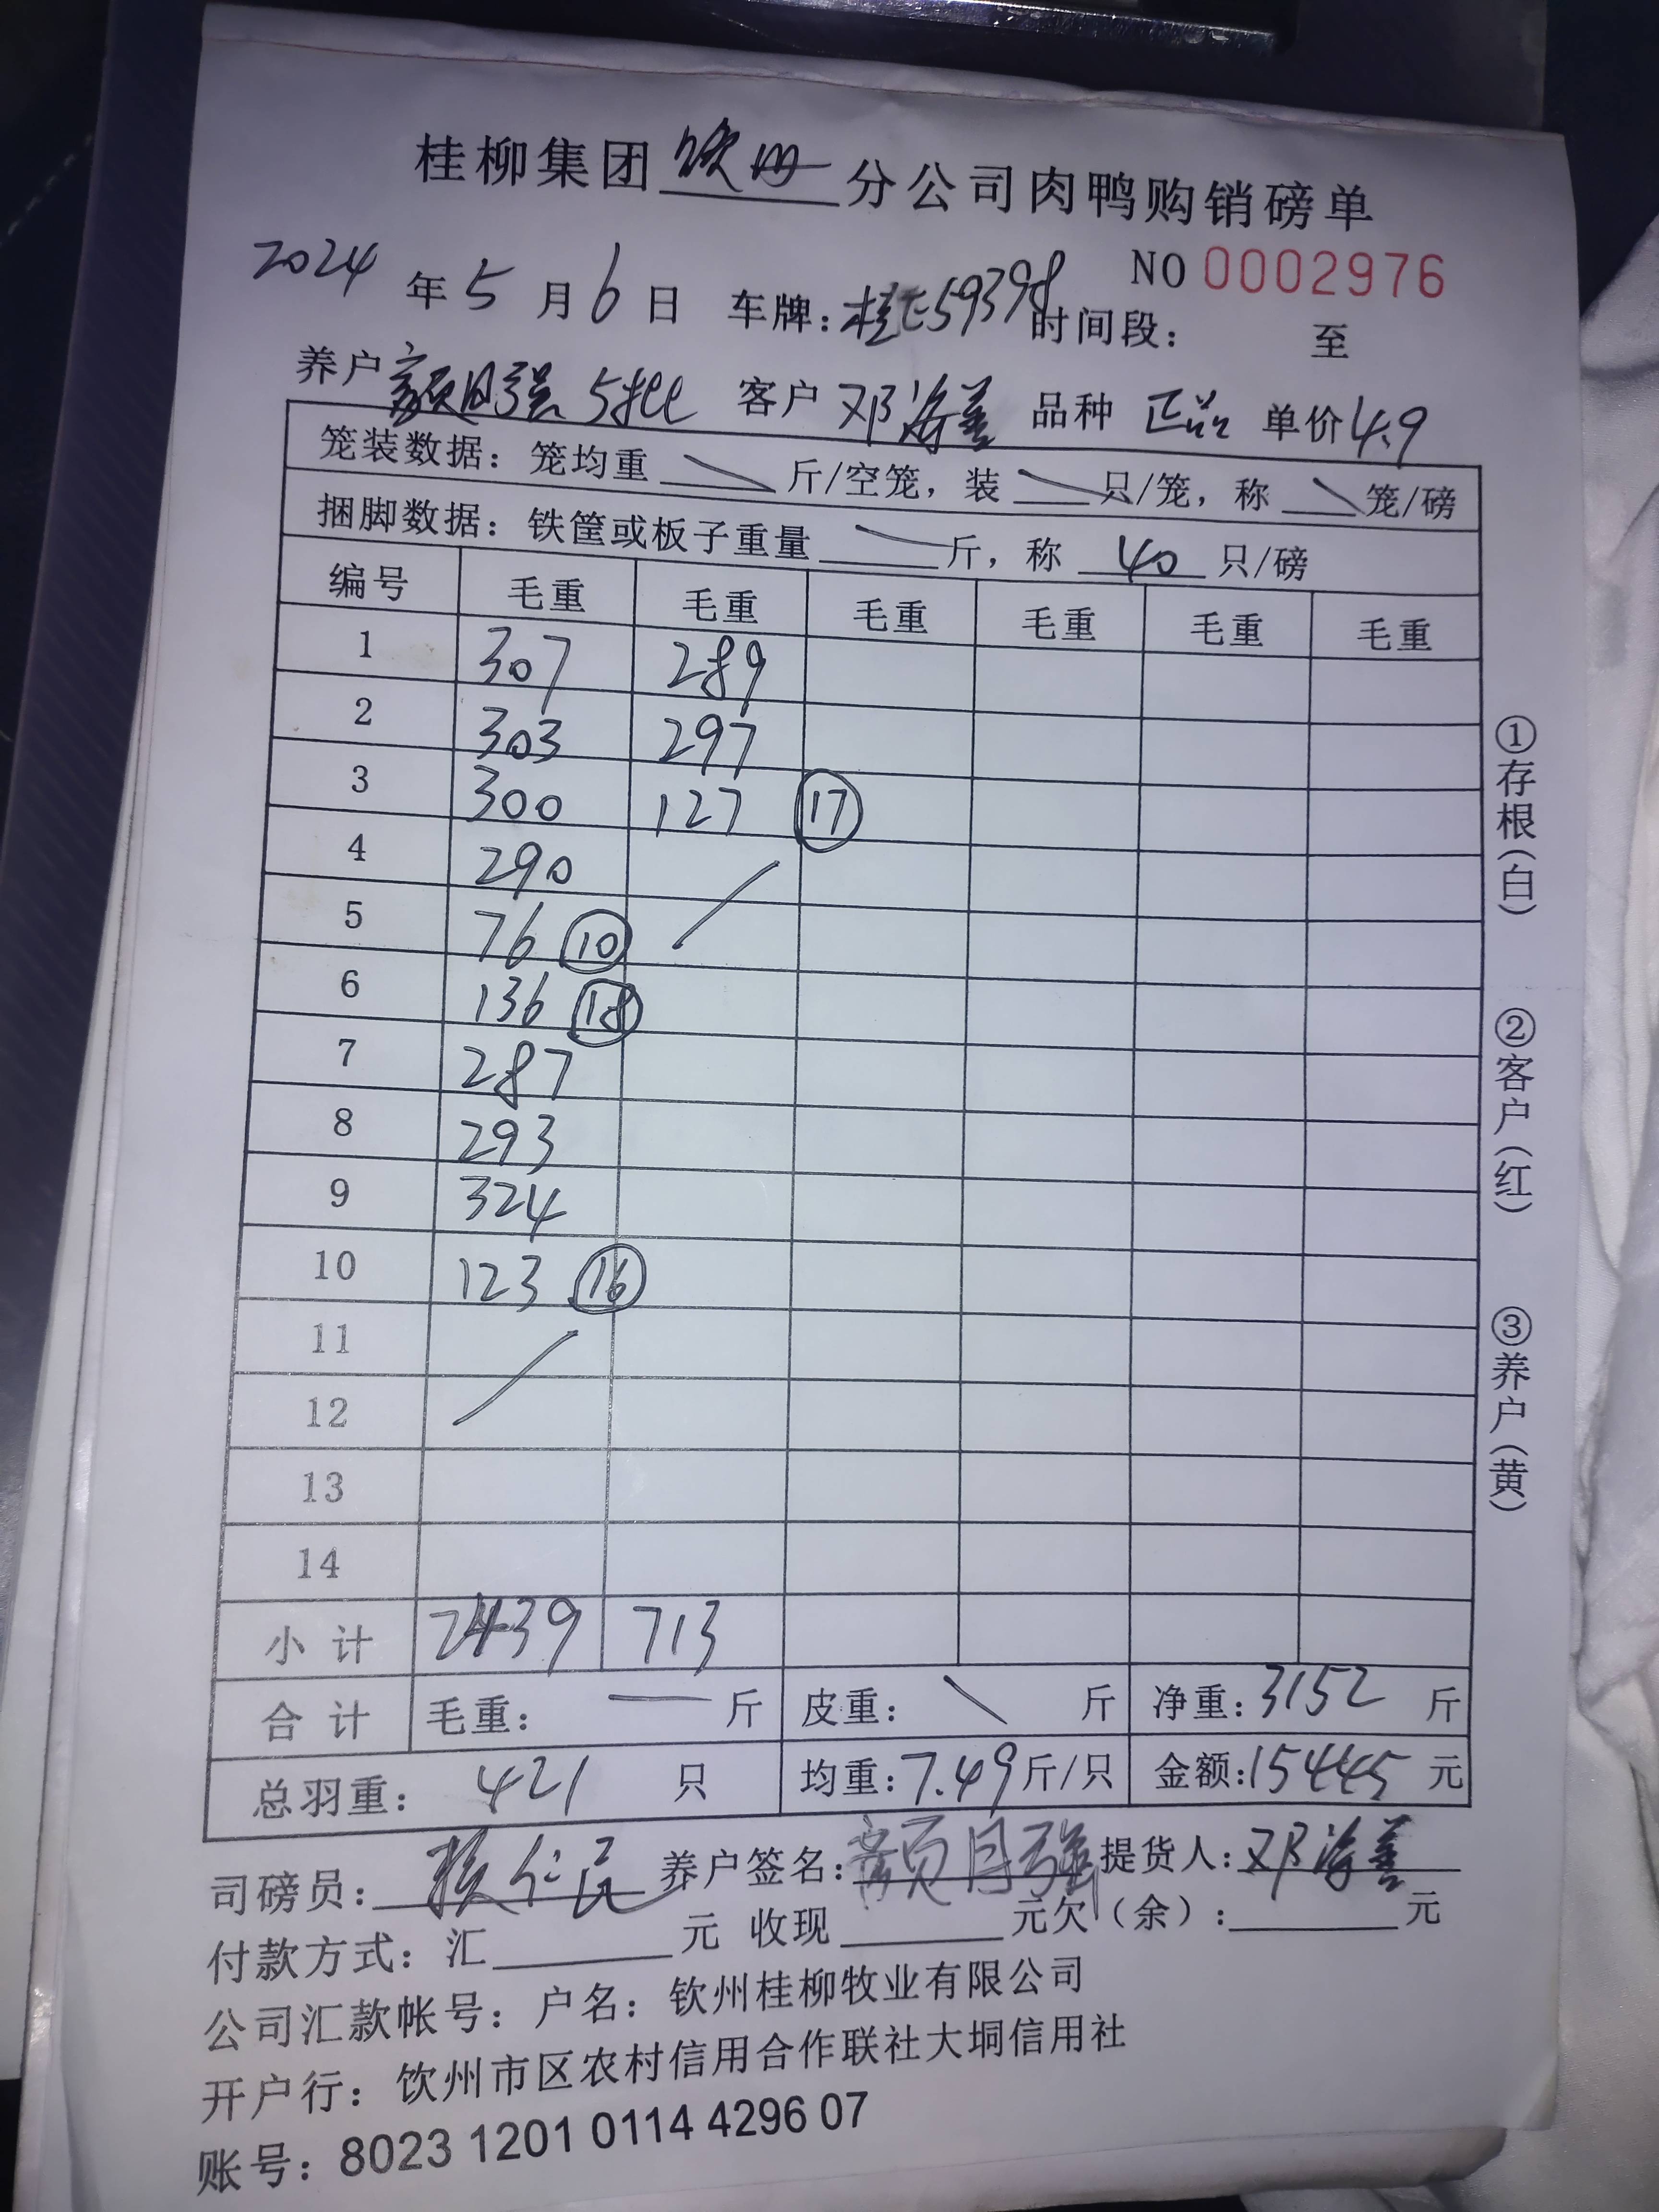 桂柳集团钦州分公司肉鸭购销磅单
NO 0002976
2024年5月6日 车牌:桂E59398 时间段: 至
养户 颜目强 5批 客户 邓海善 品种 正品 单价4.9
笼装数据:笼均重 \ 斤/空笼,装 \ 只/笼,称 \ 笼/磅
捆脚数据:铁筐或板子重量 — 斤,称 40 只/磅
编号 毛重 毛重 毛重 毛重 毛重 毛重
1 307 289
2 303 297
3 300 127 ⑰
4 290 /
5 76 ⑩
6 136 ⑱
7 287
8 293
9 324
10 123 ⑯
11 /
12
13
14
小计 2439 713
合计 毛重: — 斤 皮重: \ 斤 净重:3152 斤
总羽重: 421 只 均重:7.49斤/只 金额:15445 元
司磅员: 仁民 养户签名:颜目强 提货人:邓海善
付款方式:汇 元 收现 元欠(余): 元
公司汇款帐号:户名:钦州桂柳牧业有限公司
开户行:钦州市区农村信用合作联社大垌信用社
账号:8023 1201 0114 4296 07
①存根(白)
②客户(红)
③养户(黄)